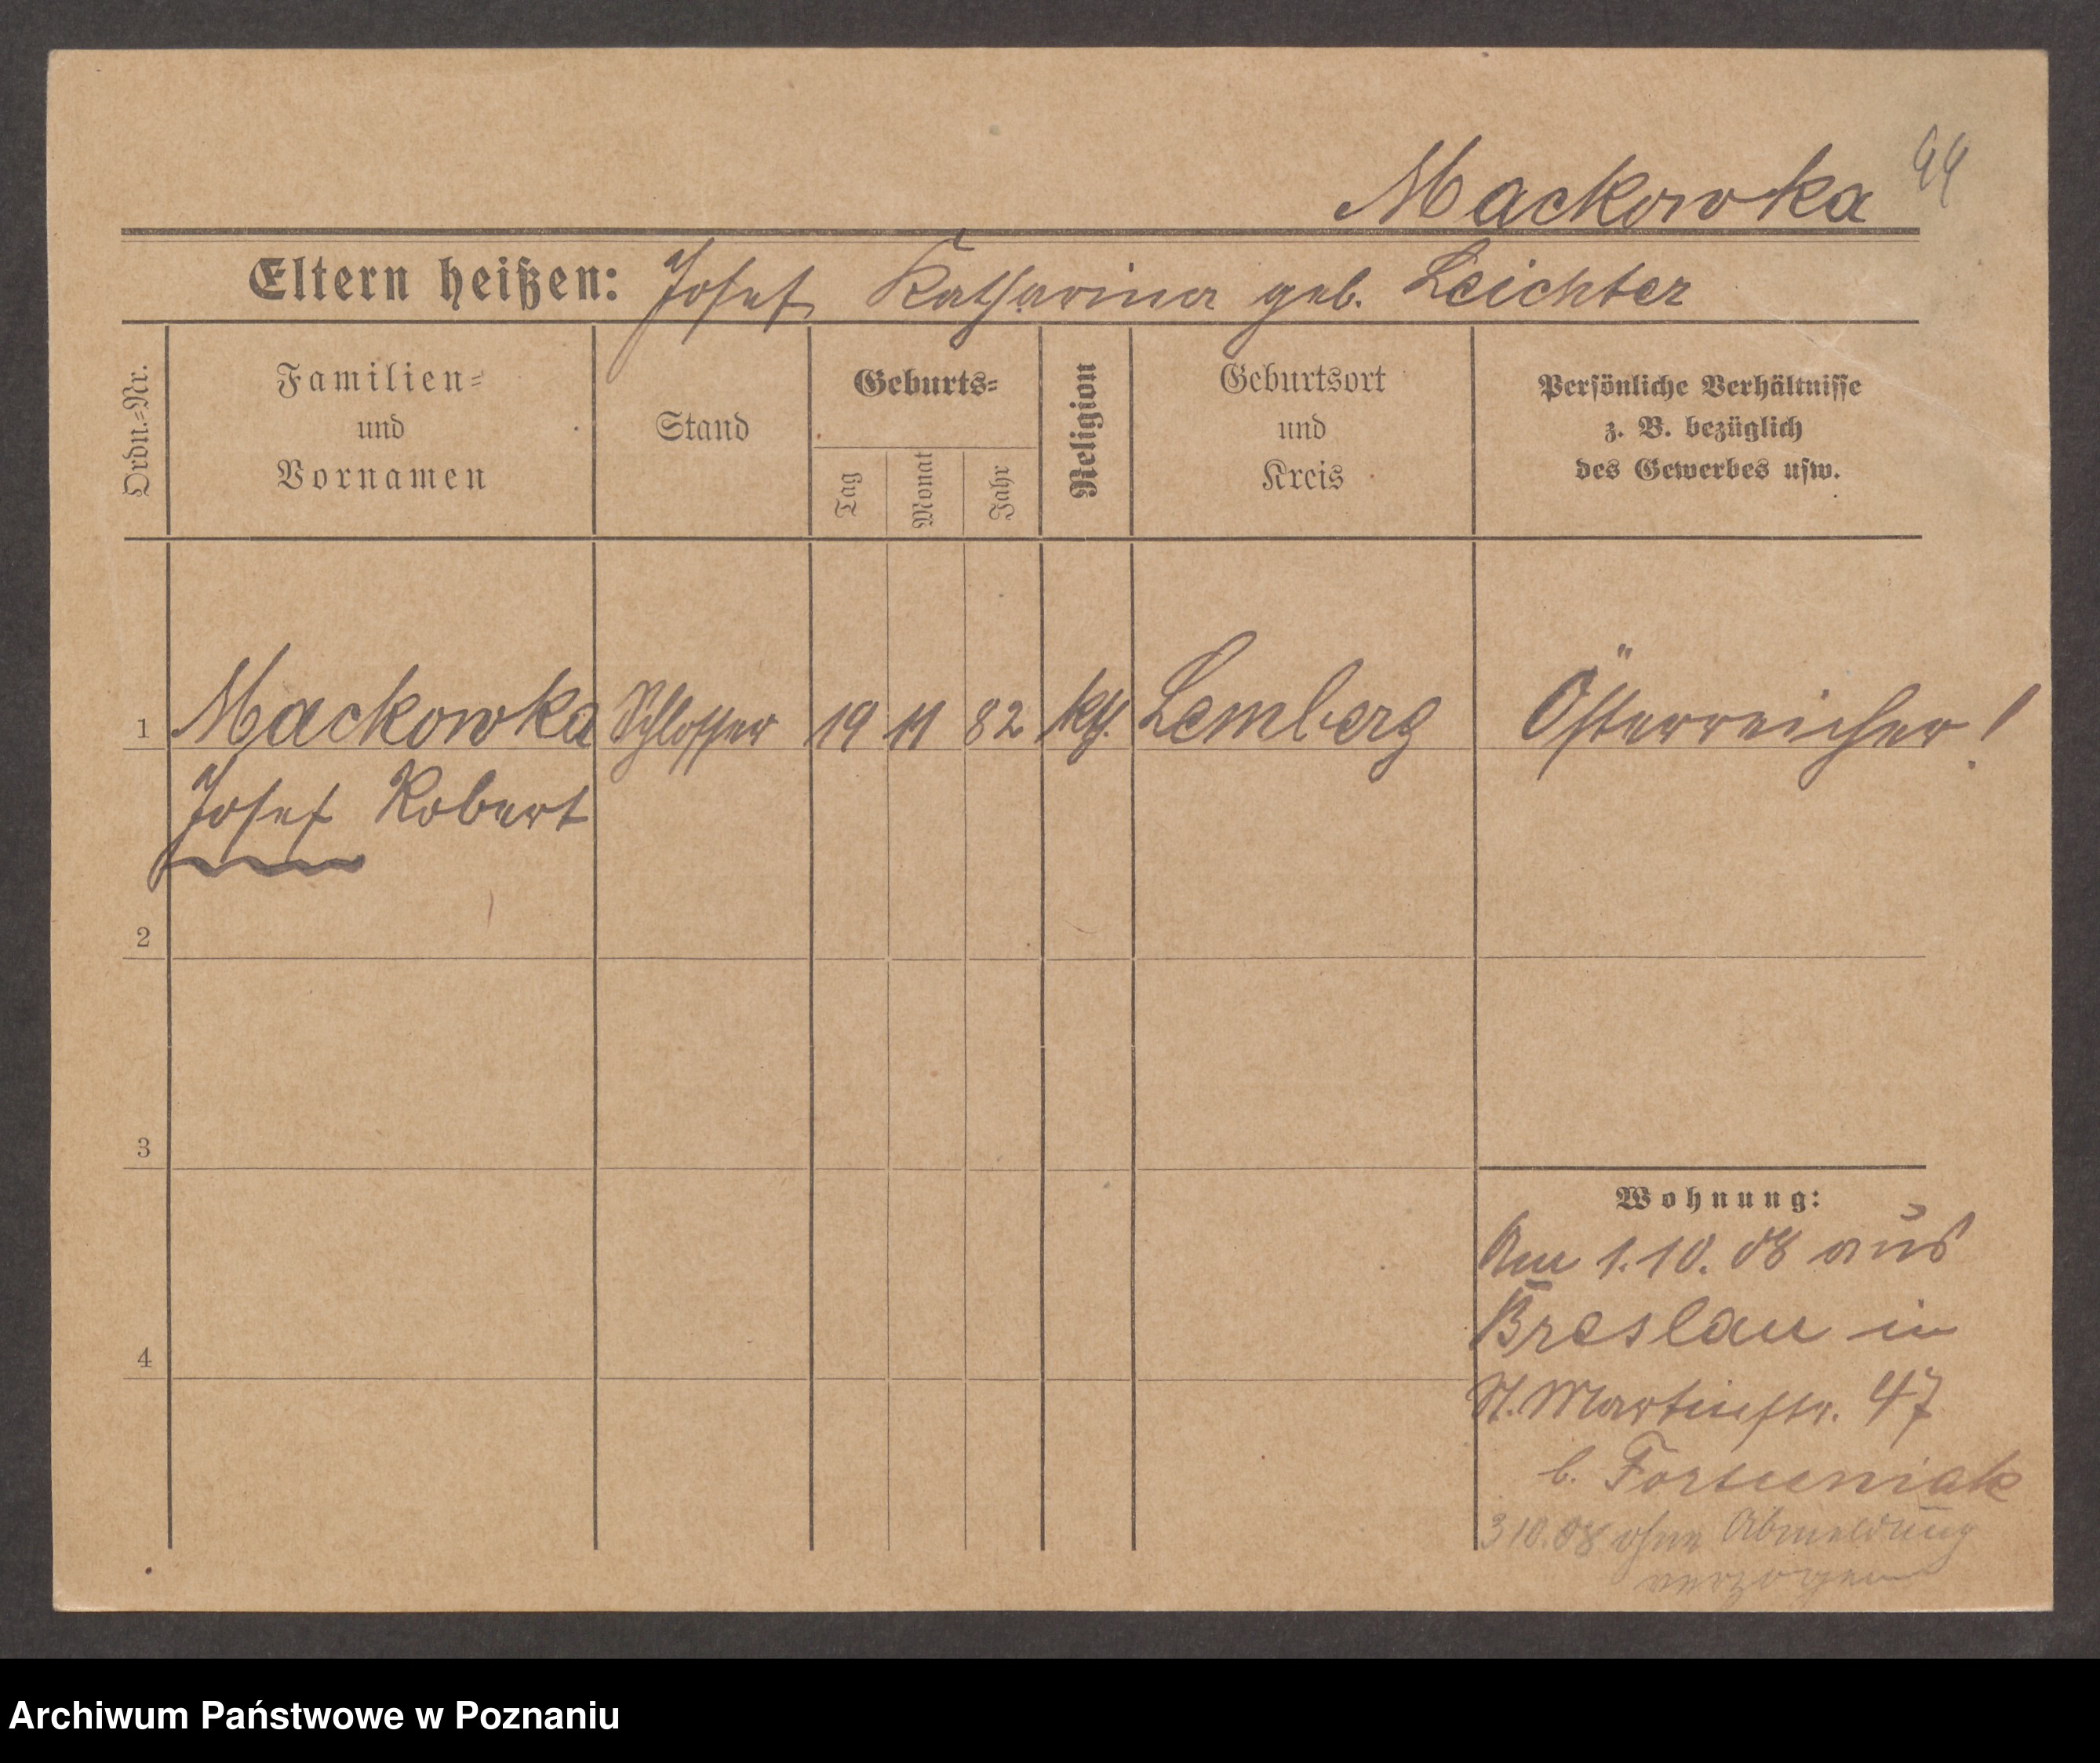 Mackowka 94
Eltern heißen: Josef Katharina geb. Leichter
Ordn.=Nr.
Familien=
und
Vornamen
Stand
Geburts=
Tag
Monat
Jahr
Religion
Geburtsort
und
Kreis
Persönliche Verhältnisse
z. B. bezüglich
des Gewerbes usw.
1 Mackowka Schlosser 19 11 82 kth. Lemberg Österreicher!
Josef Robert
2
3
4
Wohnung:
Am 1.10.08 aus
Breslau in
St. Martinstr. 47
b. Fortuniak
3 10.08 ohne Abmeldung
verzogen
Archiwum Państwowe w Poznaniu